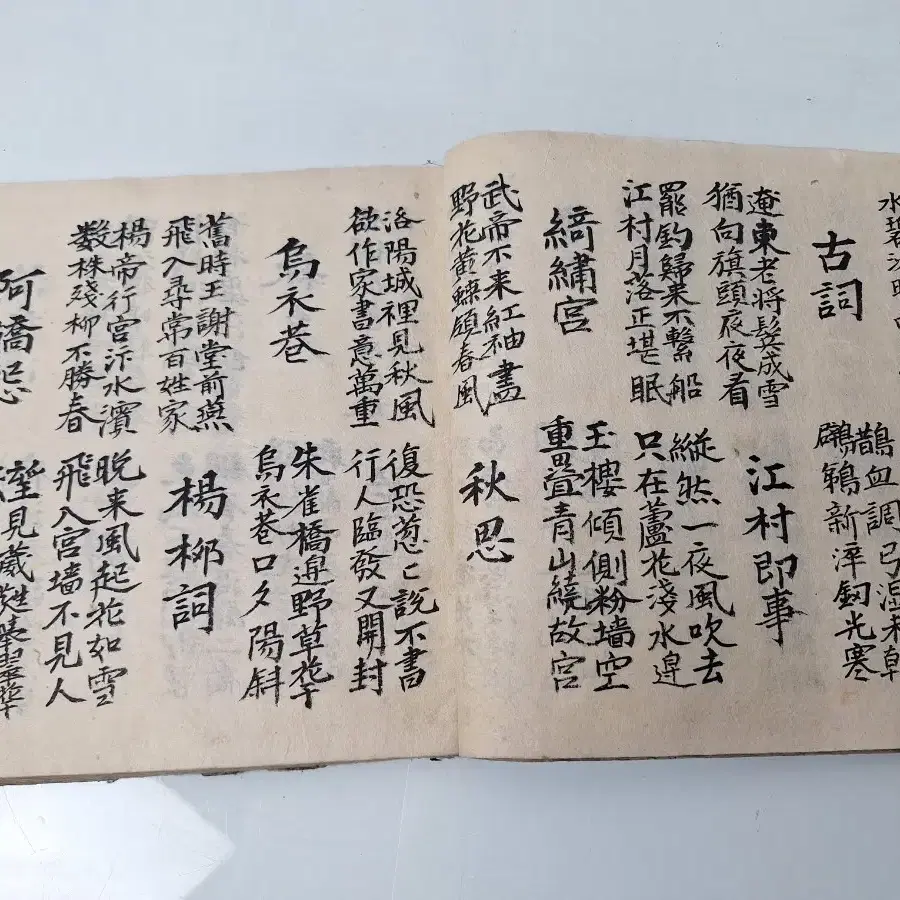 水碧沙明
古詞
鵲血調弓湿未乹
鸊鵜新淬釰光寒
遼東老将鬂成雪
猶向旗頭夜夜看
江村即事
罷釣歸来不繫船
江村月落正堪眠
縦然一夜風吹去
只在蘆花淺水邉
綺繡宮
玉樓傾側粉墙空
重疊青山繞故宮
武帝不来紅袖盡
野花黄蝶領春風
秋思
洛陽城裡見秋風
欲作家書意萬重
復恐怱〻説不書
行人臨發又開封
烏衣巷
朱雀橋邉野草花
烏衣巷口夕陽斜
舊時王謝堂前燕
飛入尋常百姓家
楊柳詞
楊帝行宮汴水濱
数株殘柳不勝春
晚来風起花如雪
飛入宮墙不見人
阿僑怨
望見葳蕤擧翠華